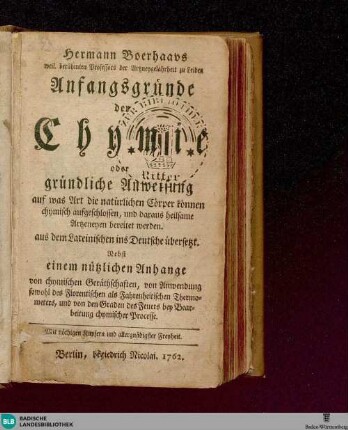 Hermann Boerhaavs
weil. berühmten Professors der Arzneygelahrheit zu Leiden
Anfangsgründe
der
Chymie
oder
gründliche Anweisung
auf was Art die natürlichen Cörper können
chymisch aufgeschlossen, und daraus heilsame
Artzeneyen bereitet werden.
aus dem Lateinischen ins Deutsche übersetzt.
Nebst
einem nützlichen Anhange
von chymischen Geräthschaften, von Anwendung
sowohl des Florentischen als Fahrenheitischen Thermo-
meters, und von den Graden des Feuers bey Bear-
beitung chymischer Processe.
Mit nöthigen Kupfern und allergnädigster Freyheit.
Berlin, Friedrich Nicolai. 1762.
BLB BADISCHE
LANDESBIBLIOTHEK
Baden-Württemberg